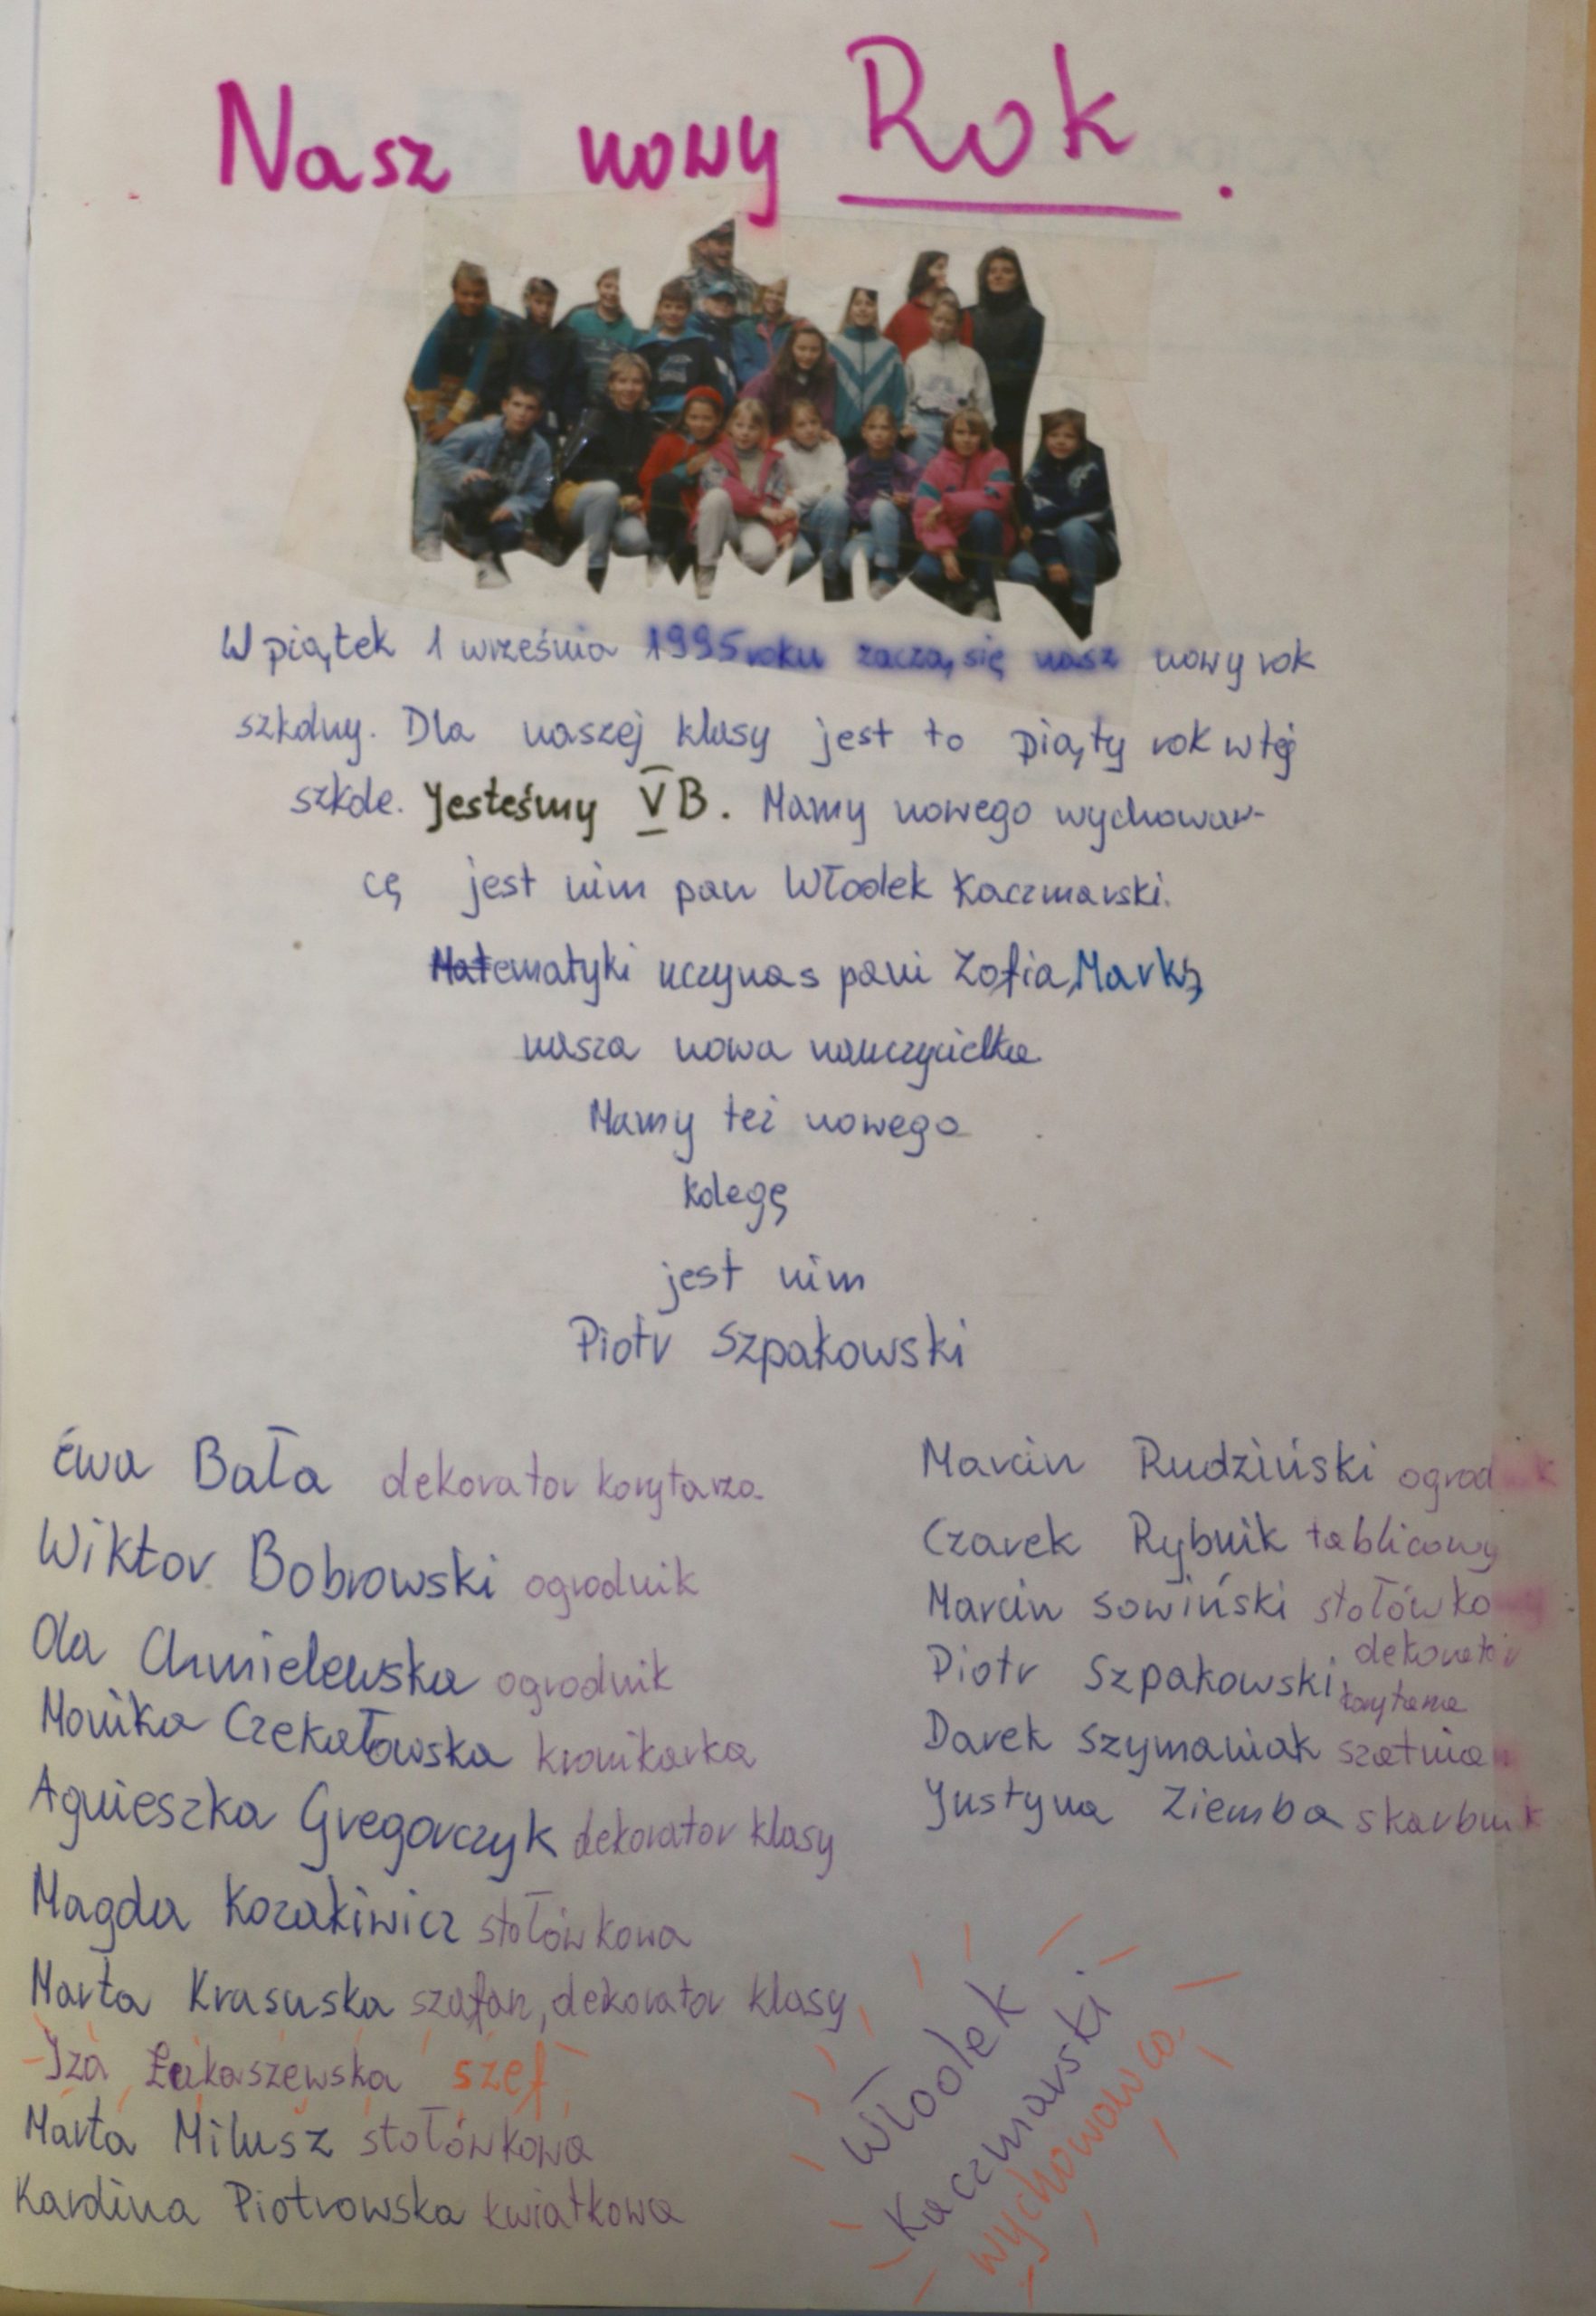 Nasz nowy Rok.
W piątek 1 września 1995 roku zaczą się nasz nowy rok
szkolny. Dla naszej klasy jest to piąty rok w tej
szkole. Jesteśmy V B. Mamy nowego wychowaw-
cę jest nim pan Włodek Kaczmarski.
Matematyki uczy nas pani Zofia Marks,
nasza nowa nauczycielka
Mamy też nowego
kolegę
jest nim
Piotr Szpakowski
Ewa Bała dekorator korytarza
Wiktor Bobrowski ogrodnik
Ola Chmielewska ogrodnik
Monika Czekałowska kronikarka
Agnieszka Gregorczyk dekorator klasy
Magda Kozakiwicz stołówkowa
Marta Krasuska szafan, dekorator klasy
Iza Łukaszewska szef
Marta Milusz stołówkowa
Karolina Piotrowska kwiatkowa
Marcin Rudziński ogrodnik
Czarek Rybnik tablicowy
Marcin Sowiński stołówkowy
Piotr Szpakowski dekorator
korytarza
Darek Szymaniak szatnia
Justyna Ziemba skarbnik
Włodek
Kaczmarski
wychowawca